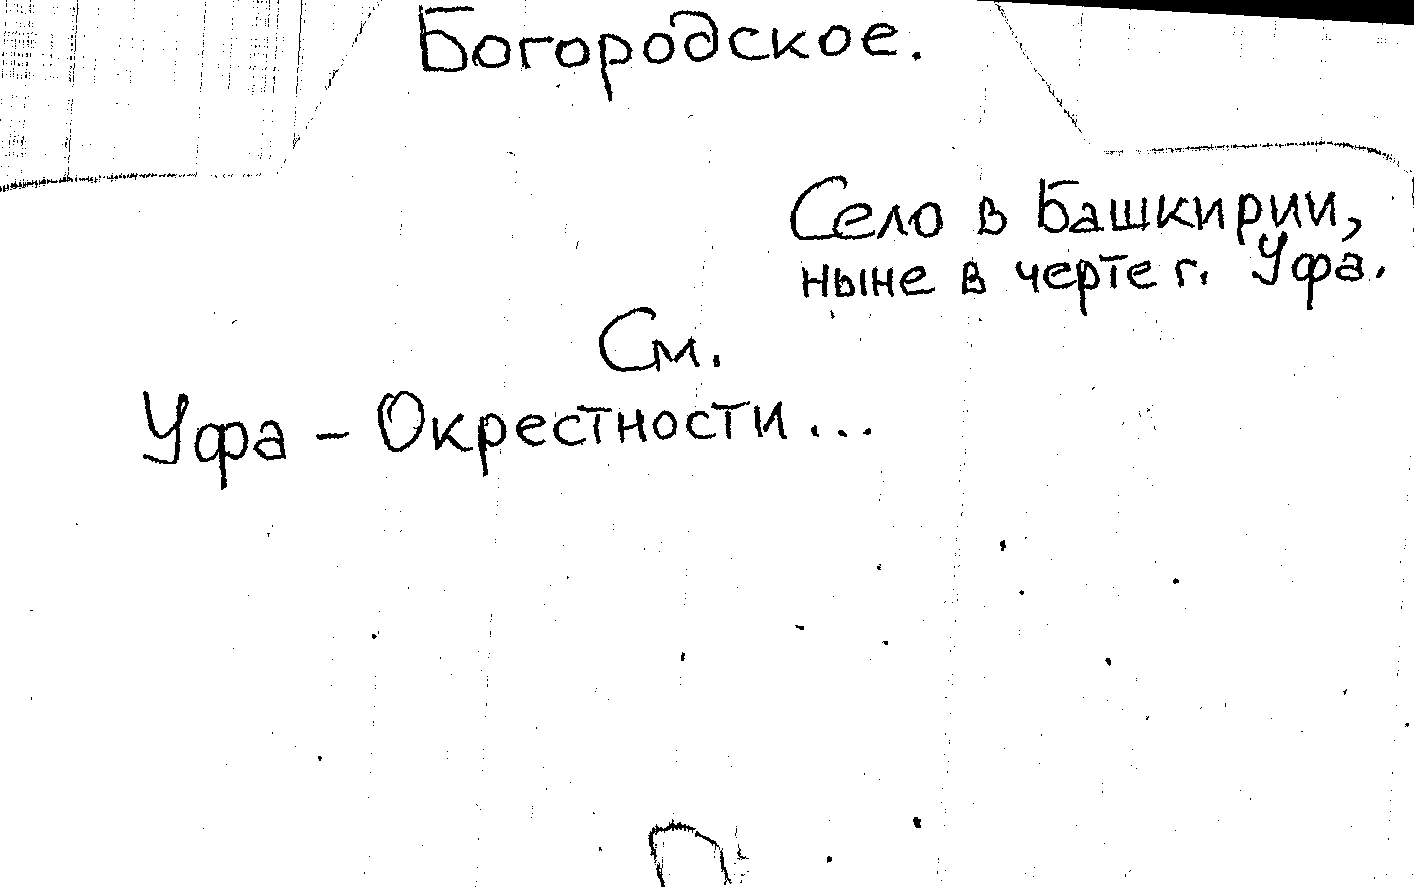 Богородское.
Село в Башкирии,
ныне в черте г. Уфа.
См.
Уфа - Окрестности...